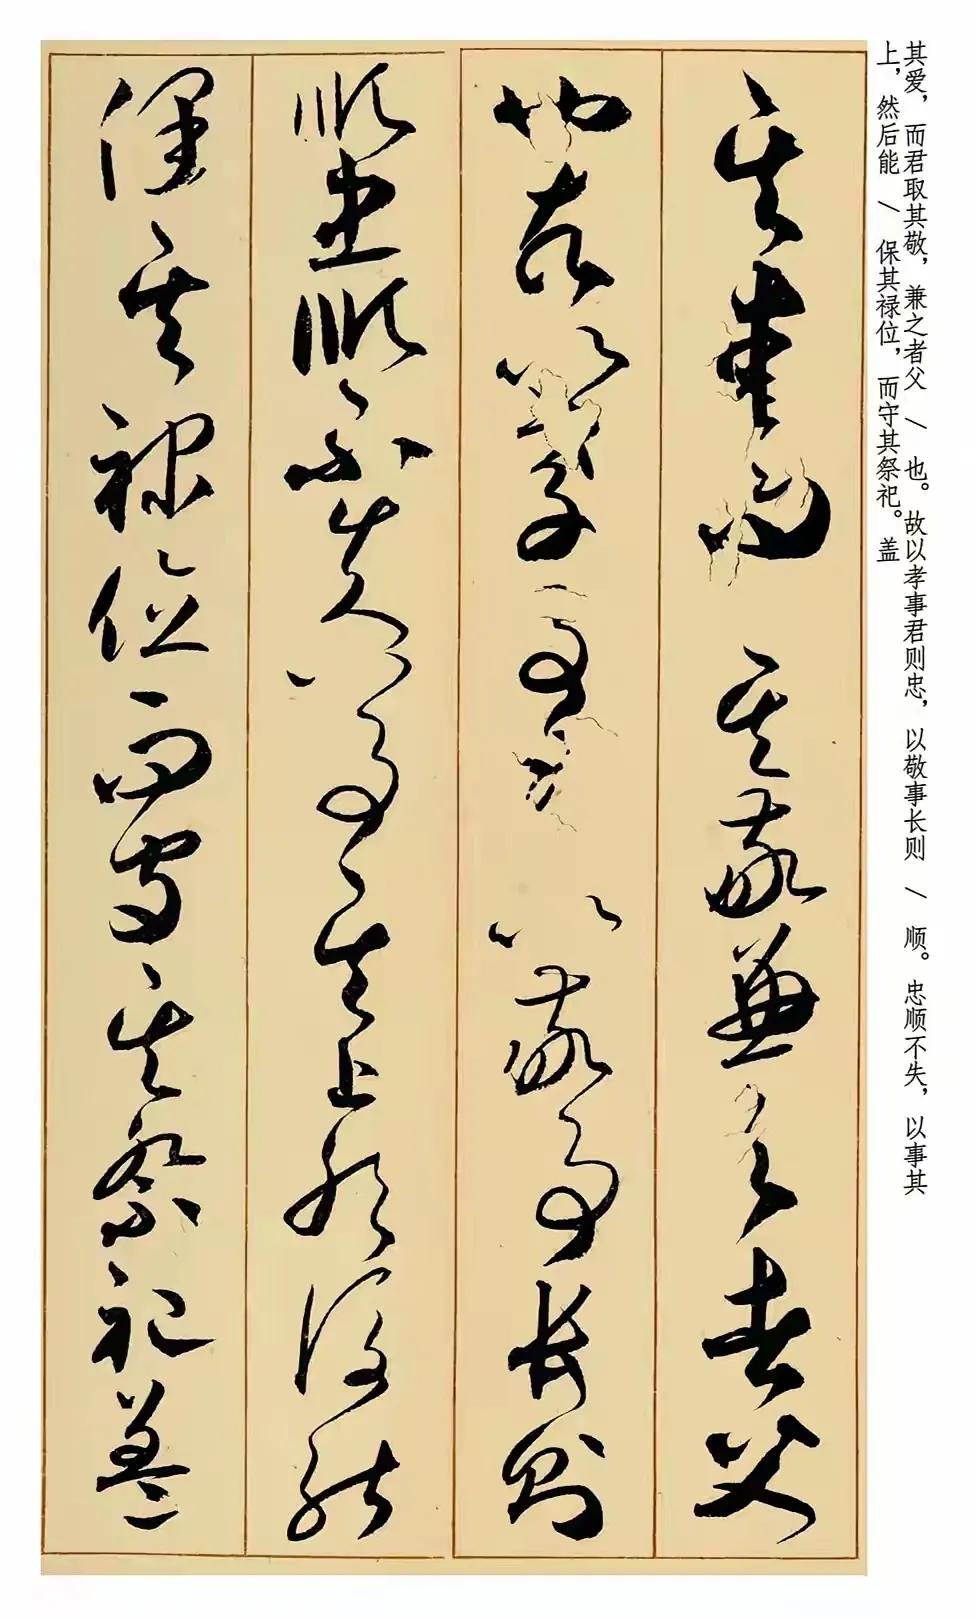 其爱，而君取其敬，兼之者父 \ 也。故以孝事君则忠，以敬事长则 \ 顺。忠顺不失，以事其
上，然后能 \ 保其禄位，而守其祭祀。盖
其愛而其敬兼之者父
也故以孝事以敬事長則
順忠順不失以事其上然後能
保其祿位而守其祭祀蓋